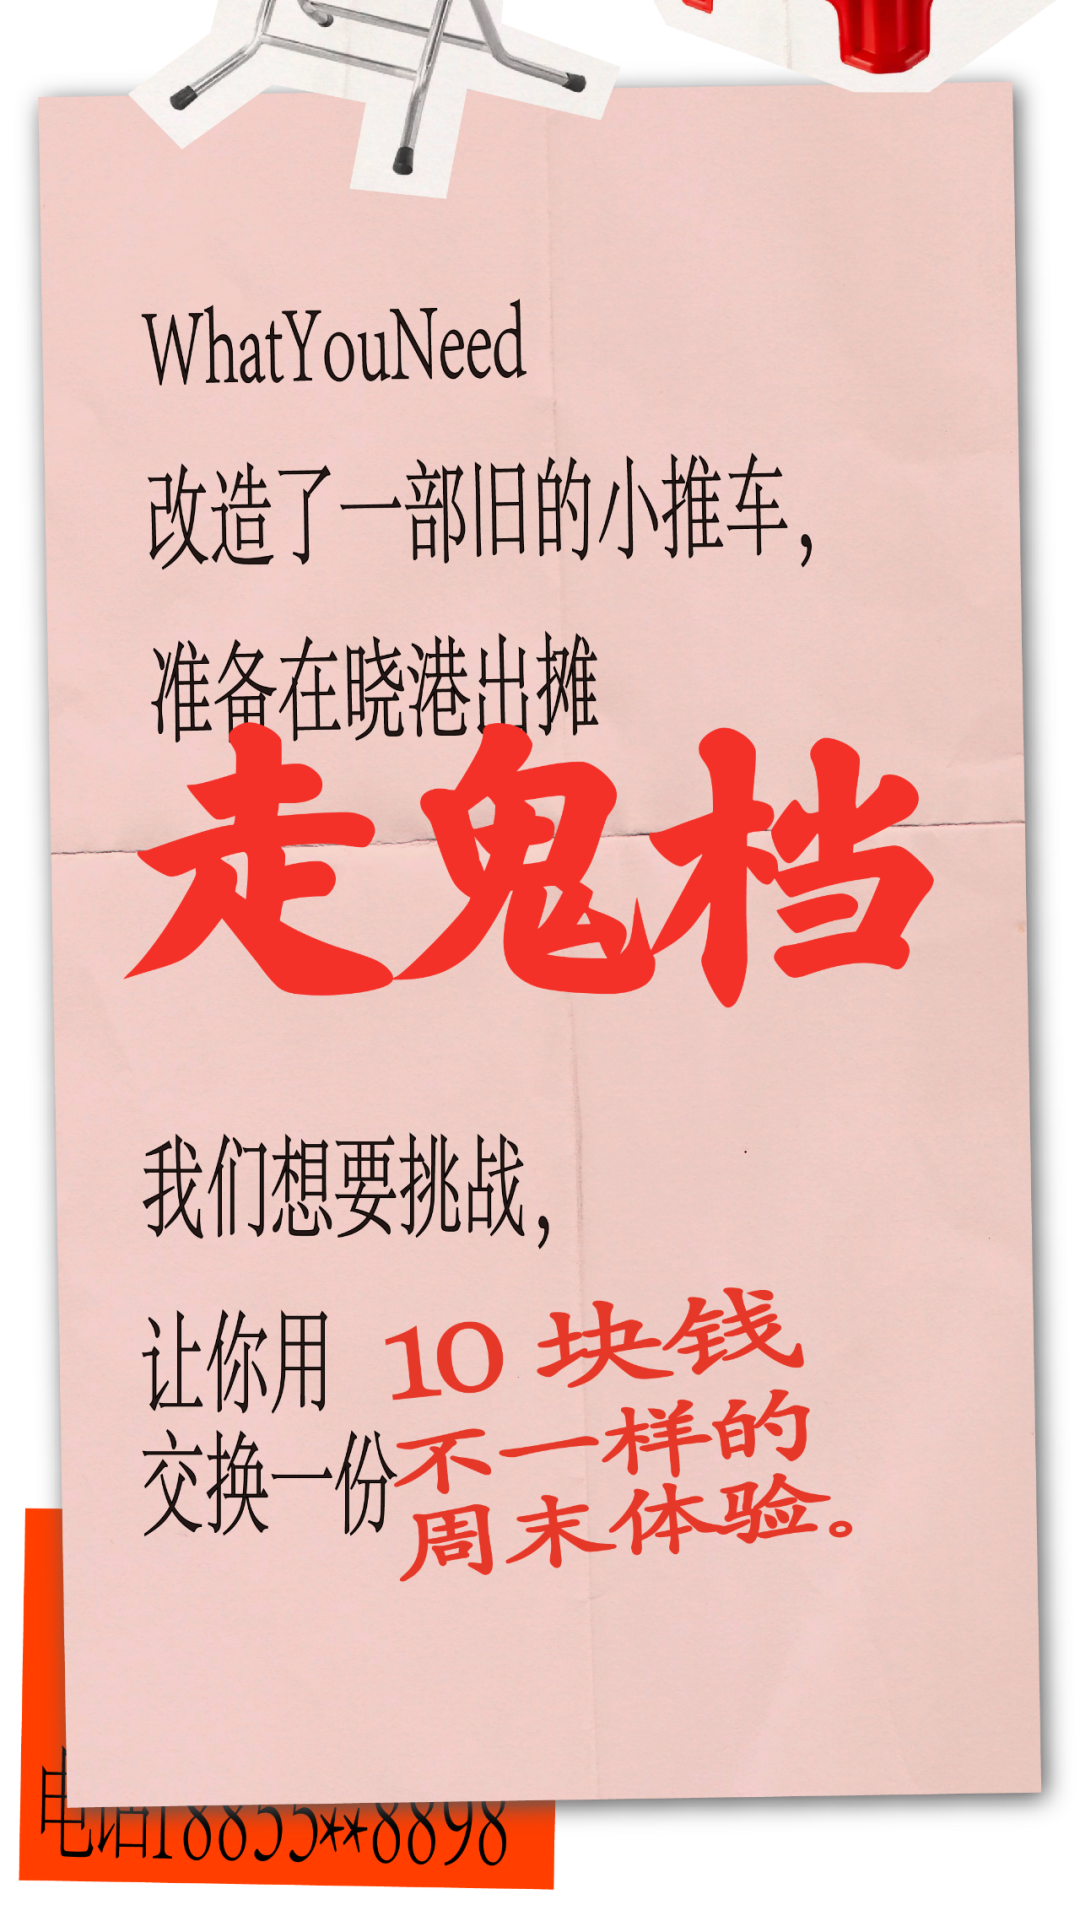 WhatYouNeed
改造了一部旧的小推车，
准备在晓港出摊
走鬼档
我们想要挑战，
让你用 10 块钱
交换一份不一样的
周末体验。
电话18855**8898